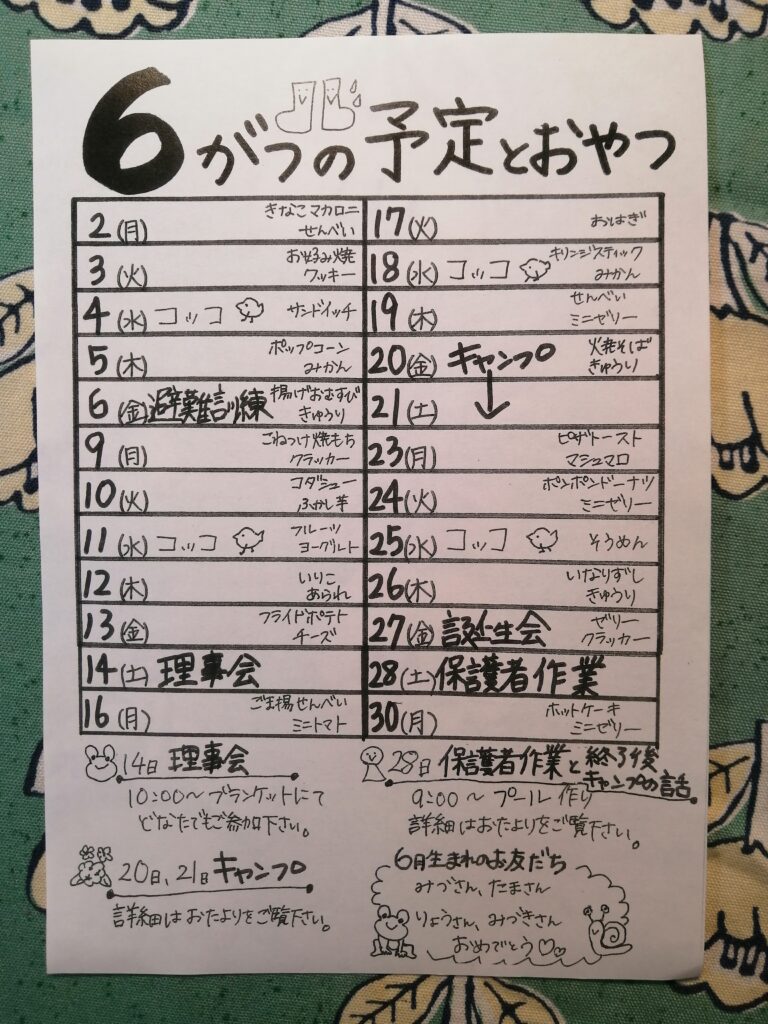 6がつの予定とおやつ
2(月) きなこマカロニ
せんべい
3(火) お好み焼
クッキー
4(水) コッコ サンドイッチ
5(木) ポップコーン
みかん
6(金) 避難訓練 揚げおむすび
きゅうり
9(月) こねつけ焼もち
クラッカー
10(火) コダシュー
ふかし芋
11(水) コッコ フルーツ
ヨーグルト
12(木) いりこ
あられ
13(金) フライドポテト
チーズ
14(土) 理事会
16(月) ごま揚せんべい
ミニトマト
17(火) おはぎ
18(水) コッコ キリンジスティック
みかん
19(木) せんべい
ミニゼリー
20(金) キャンプ 焼そば
きゅうり
21(土) ↓
23(月) ピザトースト
マシュマロ
24(火) ポンポンドーナツ
ミニゼリー
25(水) コッコ そうめん
26(木) いなりずし
きゅうり
27(金) 誕生会 ゼリー
クラッカー
28(土) 保護者作業
30(月) ホットケーキ
ミニゼリー
14日 理事会
10:00〜ブランケットにて
どなたでもご参加下さい。
20日、21日 キャンプ
詳細はおたよりをご覧下さい。
28日 保護者作業と終了後
キャンプの話
9:00〜プール作り
詳細はおたよりをご覧下さい。
6月生まれのお友だち
みづさん、たまさん
りょうさん、みづきさん
おめでとう♡♡